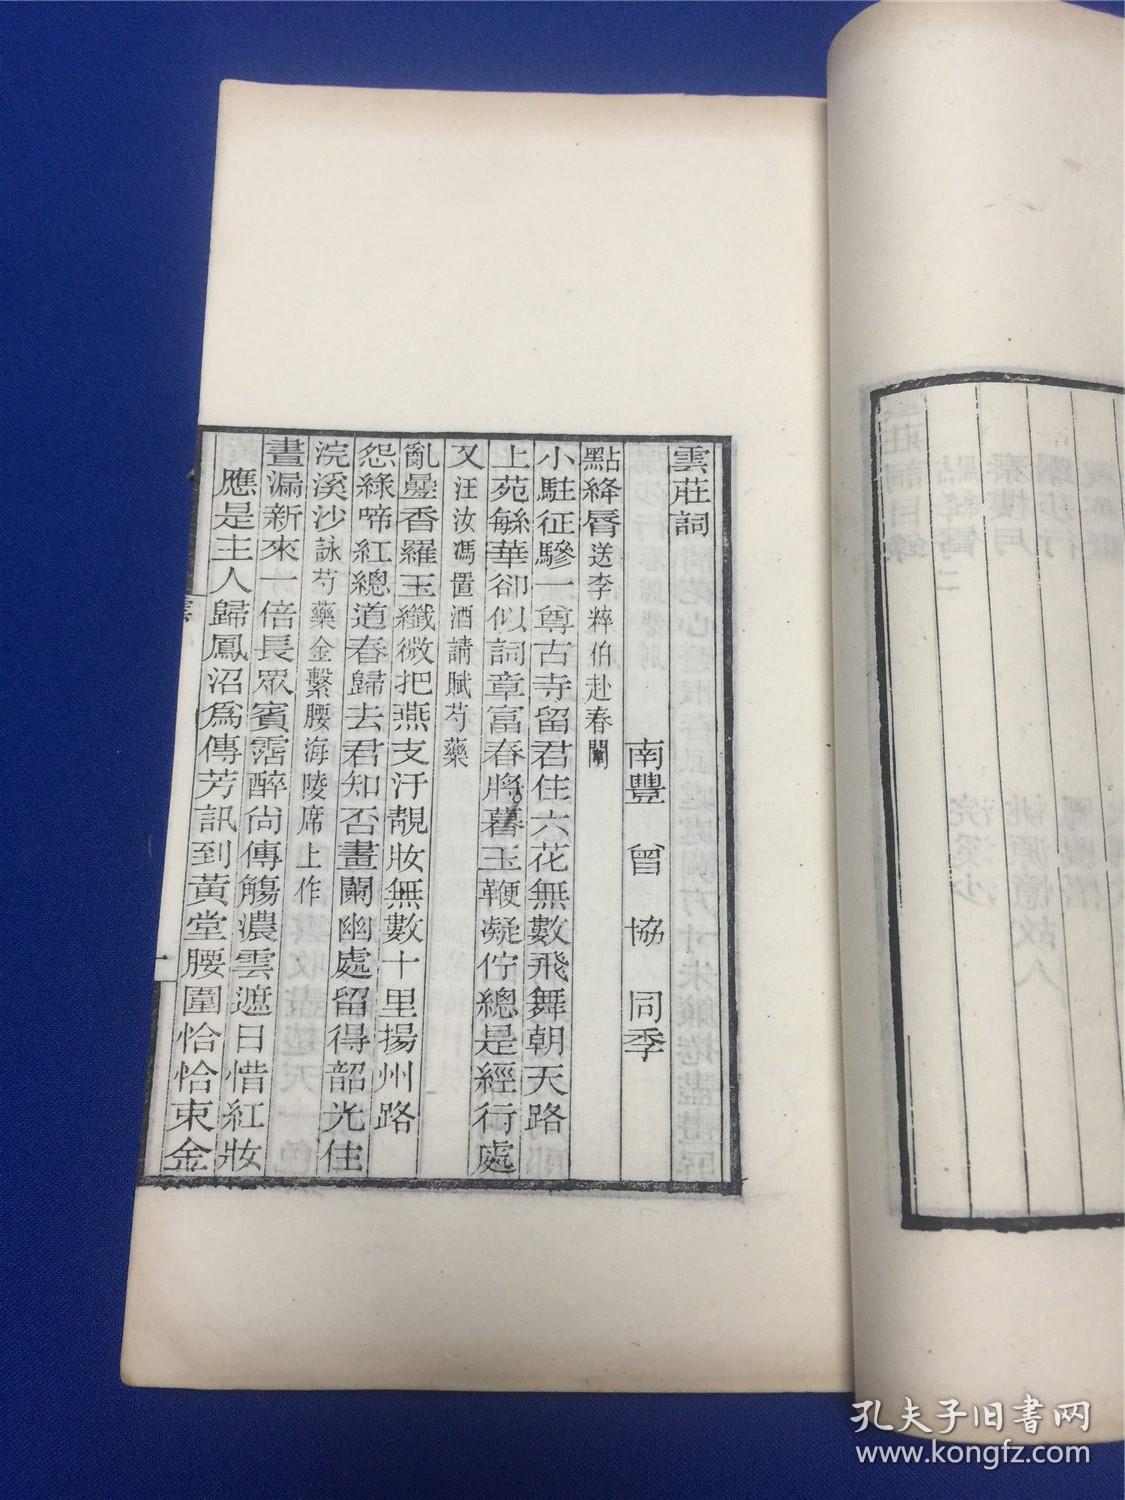 雲莊詞
南豐 曾 協 同季
點絳脣 送李粹伯赴春闈
小駐征驂一尊古寺留君住六花無數飛舞朝天路
上苑緐華卻似詞章富春將暮玉鞭凝佇總是經行處
又 汪汝馮置酒請賦芍藥
亂疊香羅玉纖微把燕支汙靚妝無數十里揚州路
怨綠啼紅總道春歸去君知否畫闌幽處留得韶光住
浣溪沙 詠芍藥金繫腰海陵席上作
晝漏新來一倍長眾賓霑醉尚傳觴濃雲遮日惜紅妝
應是主人歸鳳沼為傳芳訊到黃堂腰圍恰恰束金
一
孔夫子旧书网
www.kongfz.com